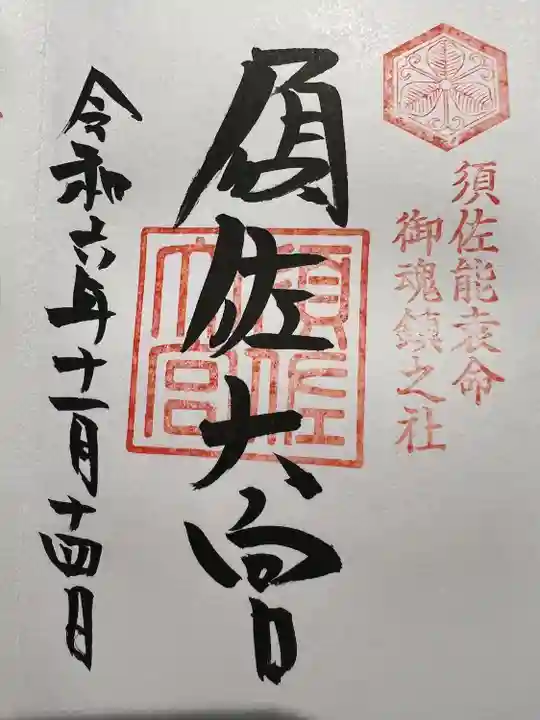 須佐能袁命
御魂鎮之社
須佐大宮
須佐
大宮
令和六年十一月十四日